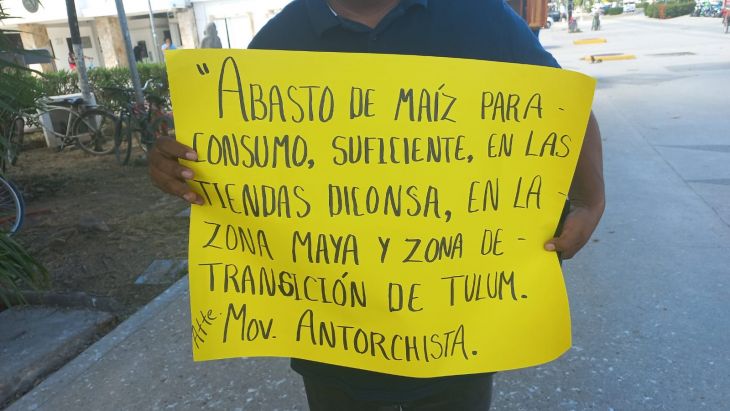 "ABASTO DE MAÍZ PARA -
CONSUMO, SUFICIENTE, EN LAS
TIENDAS DICONSA, EN LA -
ZONA MAYA Y ZONA DE -
TRANSICIÓN DE TULUM.
Atte. MOV. ANTORCHISTA.